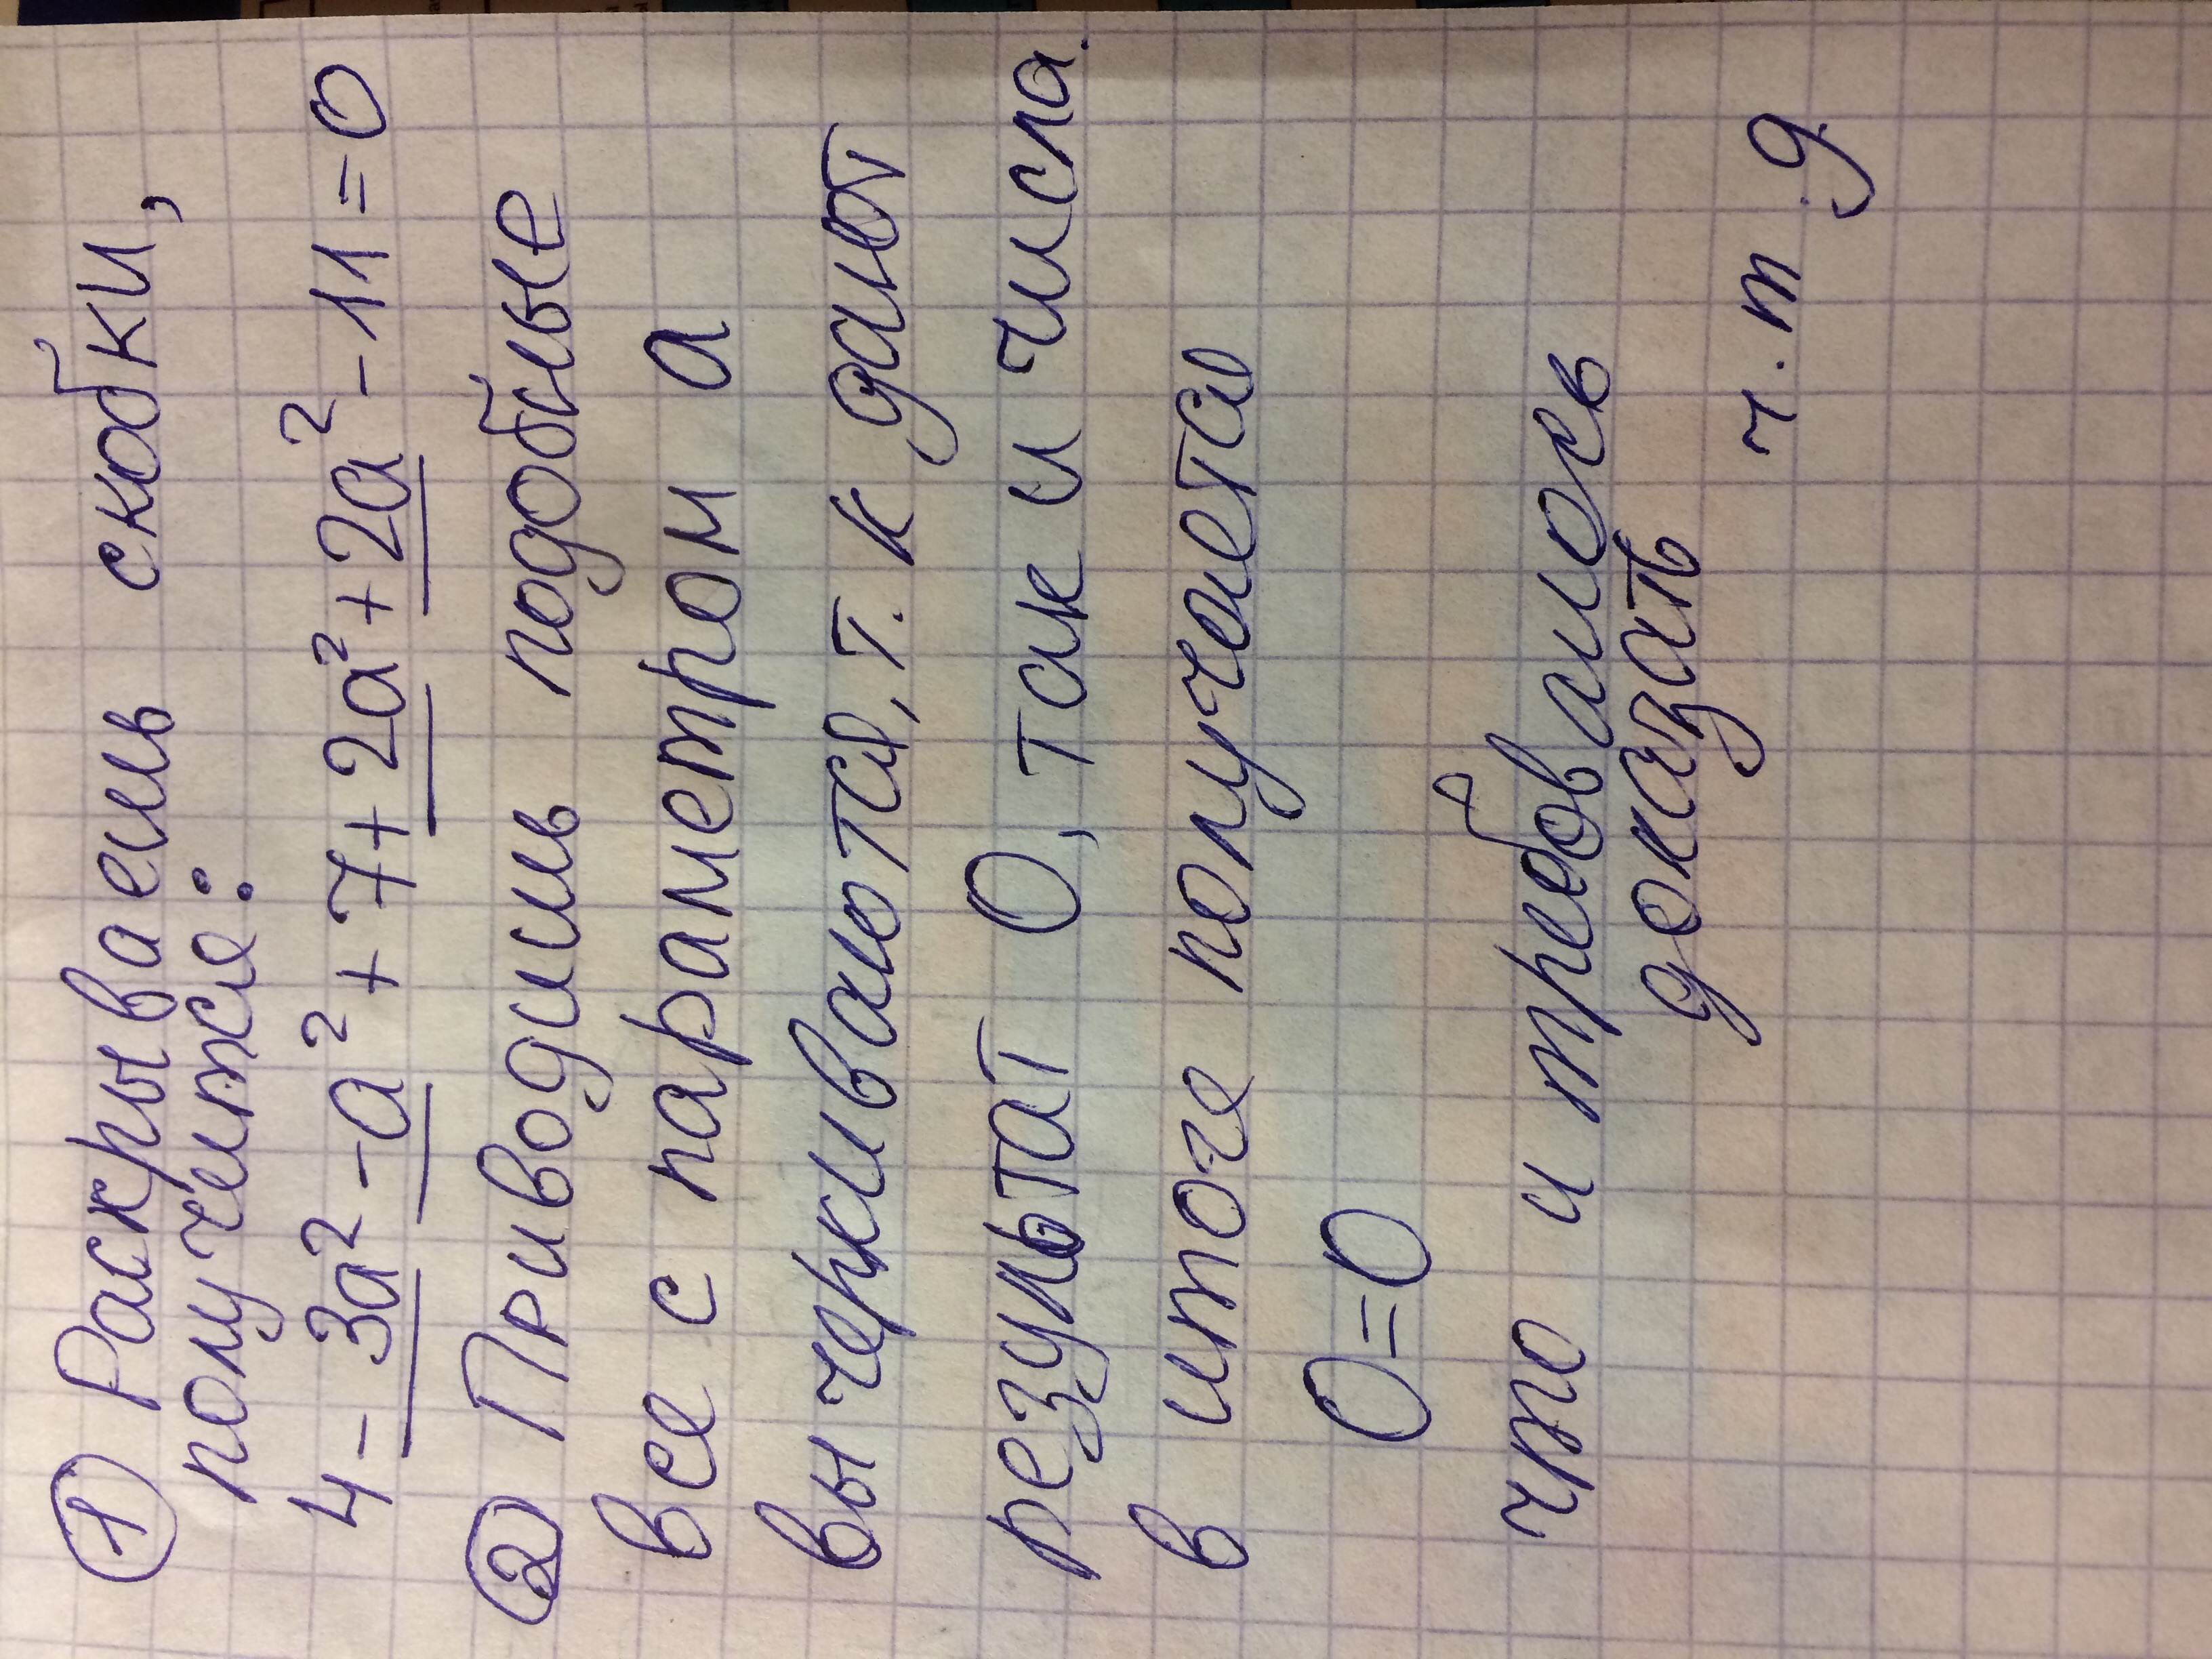 ① Раскрываем скобки,
получится:
4 - 3a² - a² + 7 + 2a² + 2a² - 11 = 0
② Приводим подобные
все с параметром а
вычеркиваются, т. к дают
результат 0, так и числа.
в итоге получается
0=0
что и требовалось
доказать
ч. т. д